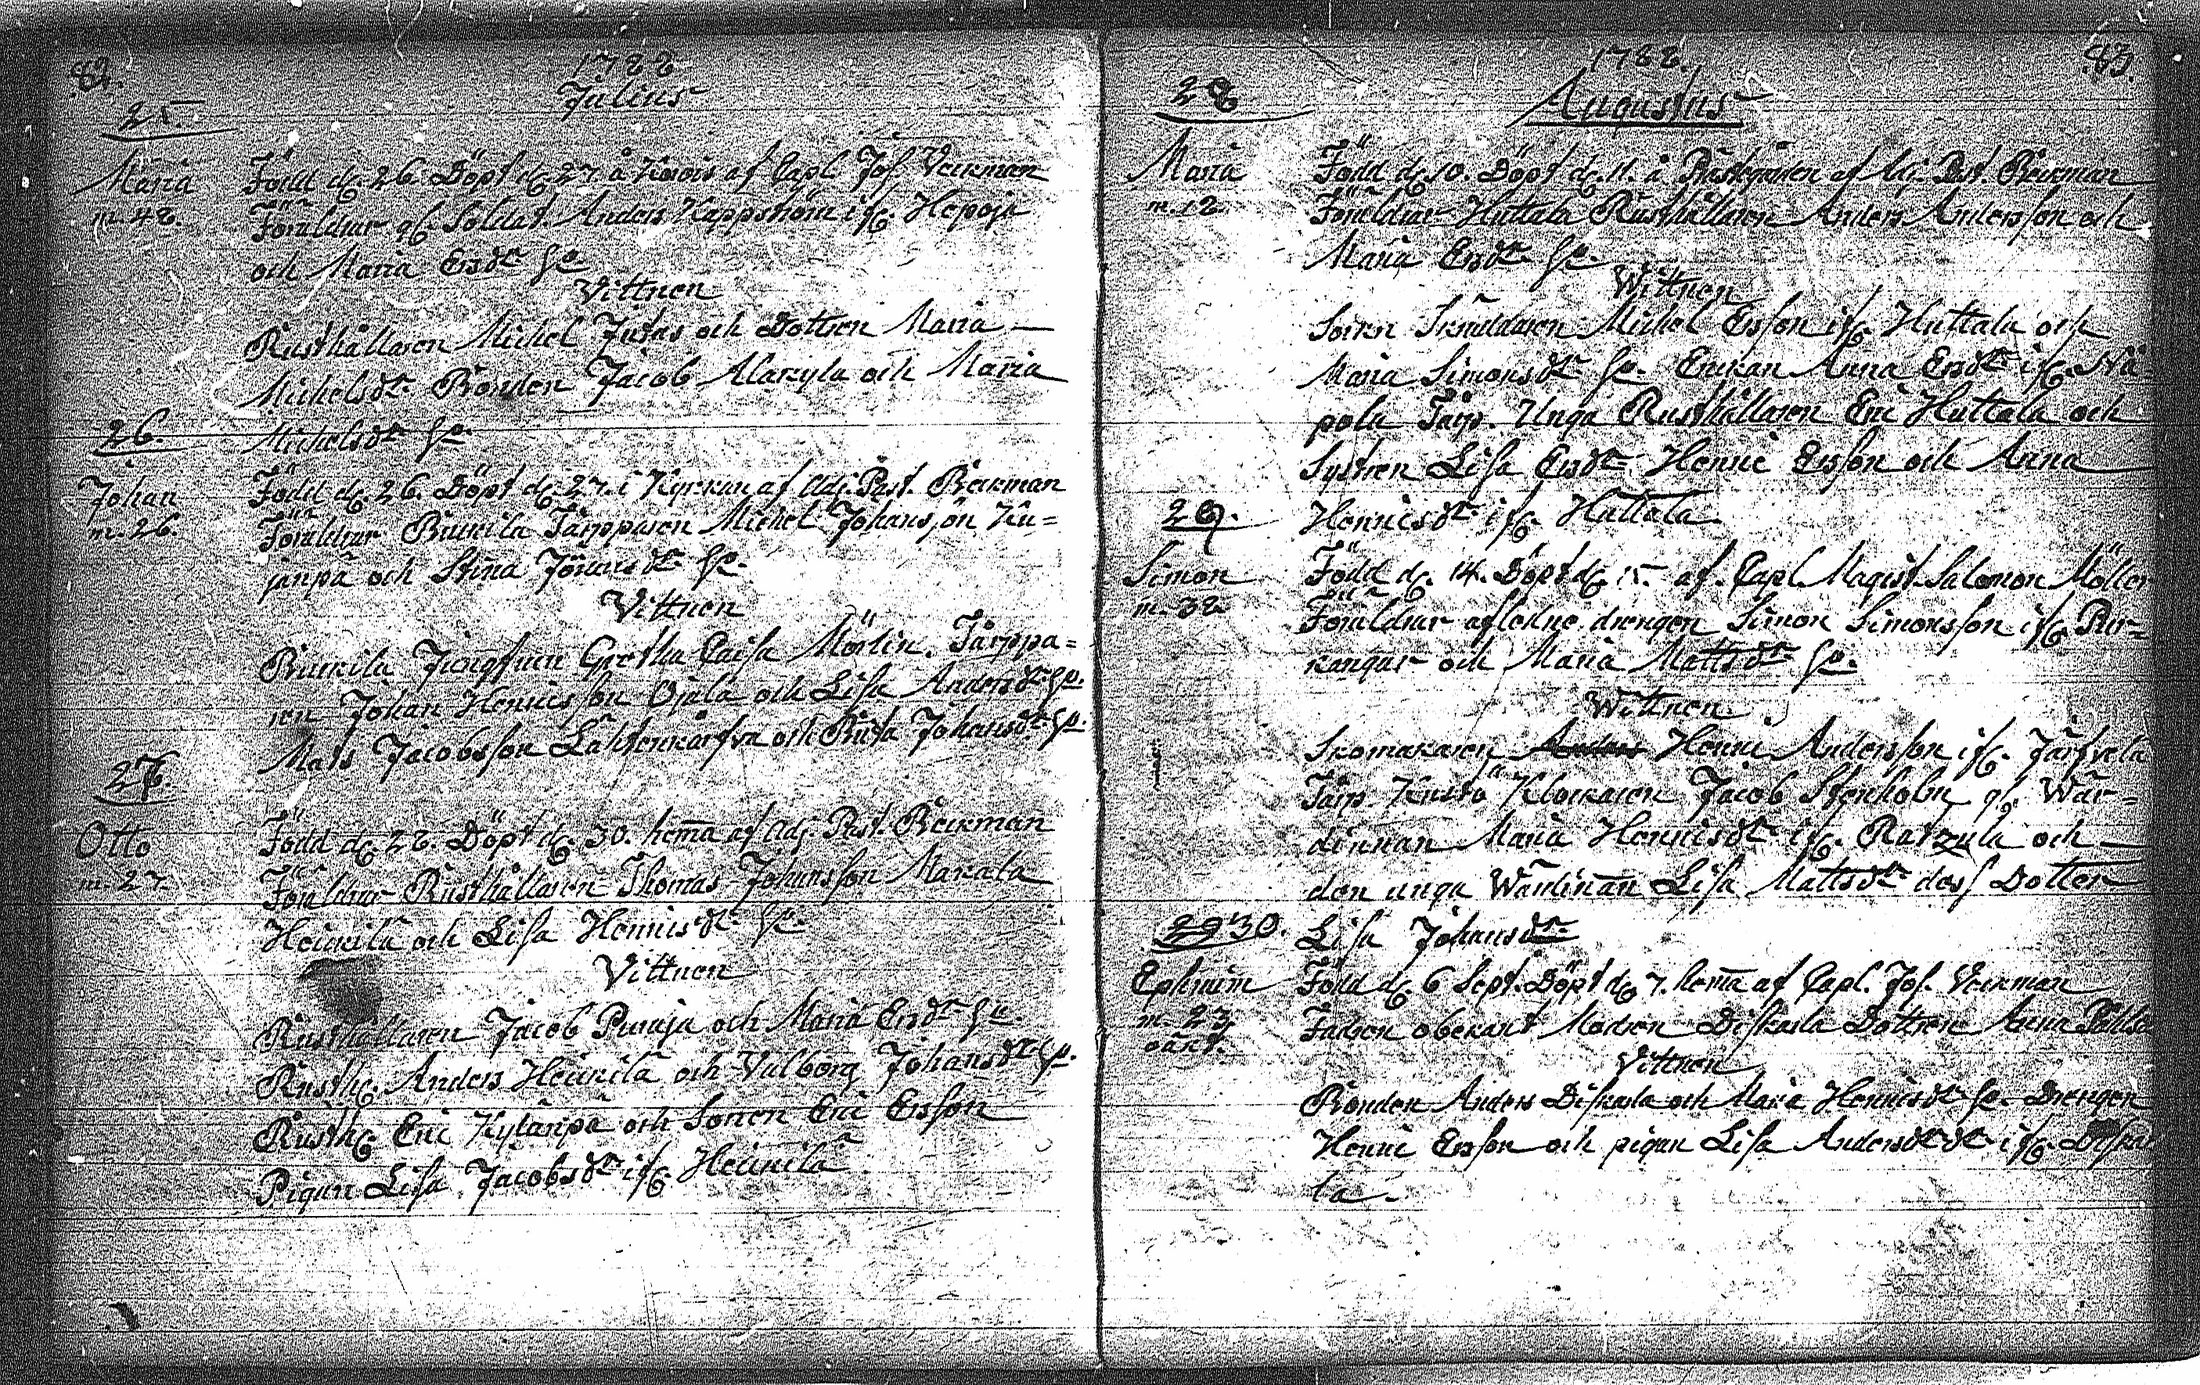 82.
1788
Julius
25.
Maria
m. 42.
Född d. 26. Döpt d. 27. å af Capl. Jos. Veckman
Föräldrar Soldat. Anders Kappström ifr. Hepoja
och Maria Ersdr. Hu.
Vittnen
Rusthållaren Michel Jutas och Dottren Maria
Michelsdr. Bonden Jacob Alakyla och Maria
Michelsdr. Hu.
26.
Johan
m. 26.
Född d. 26. Döpt d. 27. i Kyrkan af Adj. Past. Beckman
Föräldrar Torpparen Michel Johansson Ku=
janpä och Stina Hu.
Vittnen
Jungfrun Gretha Caisa Mörlin. Torppa=
ren Johan Henricsson Ojala och Lisa Andersdr. Hu.
Mats Jacobsson och Johansdr. Hu.
27.
Otto
m. 27
Född d. 28. Döpt d. 30. hema af Adj. Past. Beckman
Föräldrar Rusthållaren Thomas Johansson
Heickilä och Lisa Henricsdr. Hu.
Vittnen
Rusthållaren Jacob Puraja och Maria Ersdr. Hu.
Rusth. Anders Heickilä och Valborg Johansdr. Hu.
Rusth. Eric Kylänpä och Sonen Eric Ersson
Pigan Lisa Jacobsdr. ifr. Heickilä
83.
1788.
Augustus
28
Maria
m. 12
Född d. 10. Döpt d. 11. i Prästegården af Adj. Past. Beckman
Föräldrar Huttala Rusthållaren Anders Andersson och
Maria Ersdr. Hu.
Wittnen
Michel Ersson ifr. Huttala och
Maria Simonsdr. Hu. Enkan Anna Ersdr. ifr. Nä=
pola Torp. Unga Rusthållaren Eric Huttala och
Systren Lisa Ersdr. Henric Ersson och Anna
Henricsdr. ifr. Huttala.
29.
Simon
m. 32
Född d. 14. Döpt d. 15. af Capl. Magist. Salomon Möller
Föräldrar aflidne drengen Simon Simonsson ifr. Pur=
kangas och Maria Mattsdr. Hu.
Wittnen
Skomakaren Henric Andersson ifr. Järfvelä
Torp Klockaren Jacob Stenholm Wär=
dinnan Maria Henricsdr. ifr. och
den unga Wärdinan Lisa Mattsdr. dess Dotter
Lisa Johansdr.
30.
Ephraim
m. 23
oäkt.
Född d. 6 Sept. Döpt d. 7. hema af Capl. Jos. Veckman
Fadren obekant Modren Diskarla Dottren Anna
Vittnen
Bonden Anders Diskarla och Maria Henricsdr. Hu. Drengen
Henric Ersson och pigan Lisa Andersdr. ifr. Diskar
la.